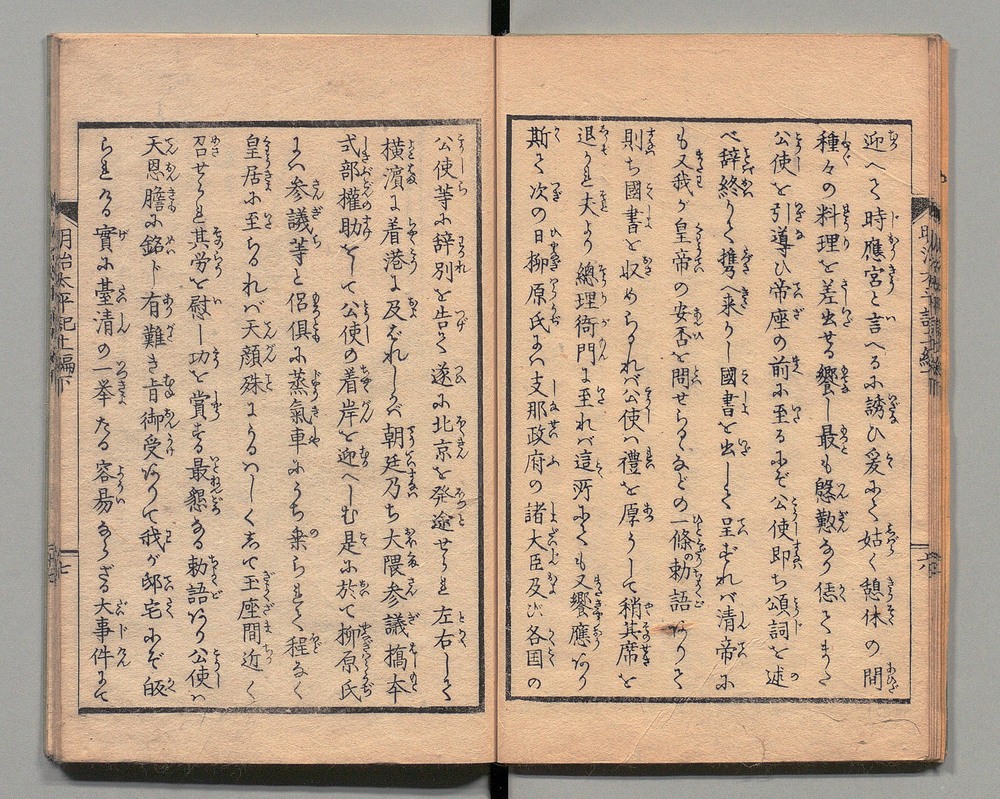 迎へて時應宮と言へるに誘ひ爰にて姑く憩休の間
種々の料理を差出せる饗し最も慇懃なり偖てまた
公使を引導ひ帝座の前に至るにぞ公使即ち頌詞を述
べ辞終りて携へ来りし國書を出して呈ずれバ清帝に
も又我が皇帝の安否を問せらるゝなどの一條の勅語ありて
則ち國書を収めらるれバ公使ハ禮を厚うして稍其席を
退りたれ夫より總理衙門に至れバ這所にても又饗應あり
斯て次の日柳原氏にハ支那政府の諸大臣及び各国の
公使等に辞別を告て遂に北京を発途せられ左右して
横濱に着港に及ばれしかバ朝廷乃ち大隈参議橋本
式部權助をして公使の着岸を迎へしむ是に於て柳原氏
にハ参議等と侶倶に蒸氣車にうち乗られて程なく
皇居に至らるれバ天顔殊にうるハしくして玉座間近く
召せられ其労を慰し功を賞する最懇なる勅語あり公使ハ
天恩膽に銘じ有難き旨御受ありて我が邸宅にぞ皈
られたる實に臺清の一挙たる容易ならざる大事件にて
明治太平記十編下
七
六